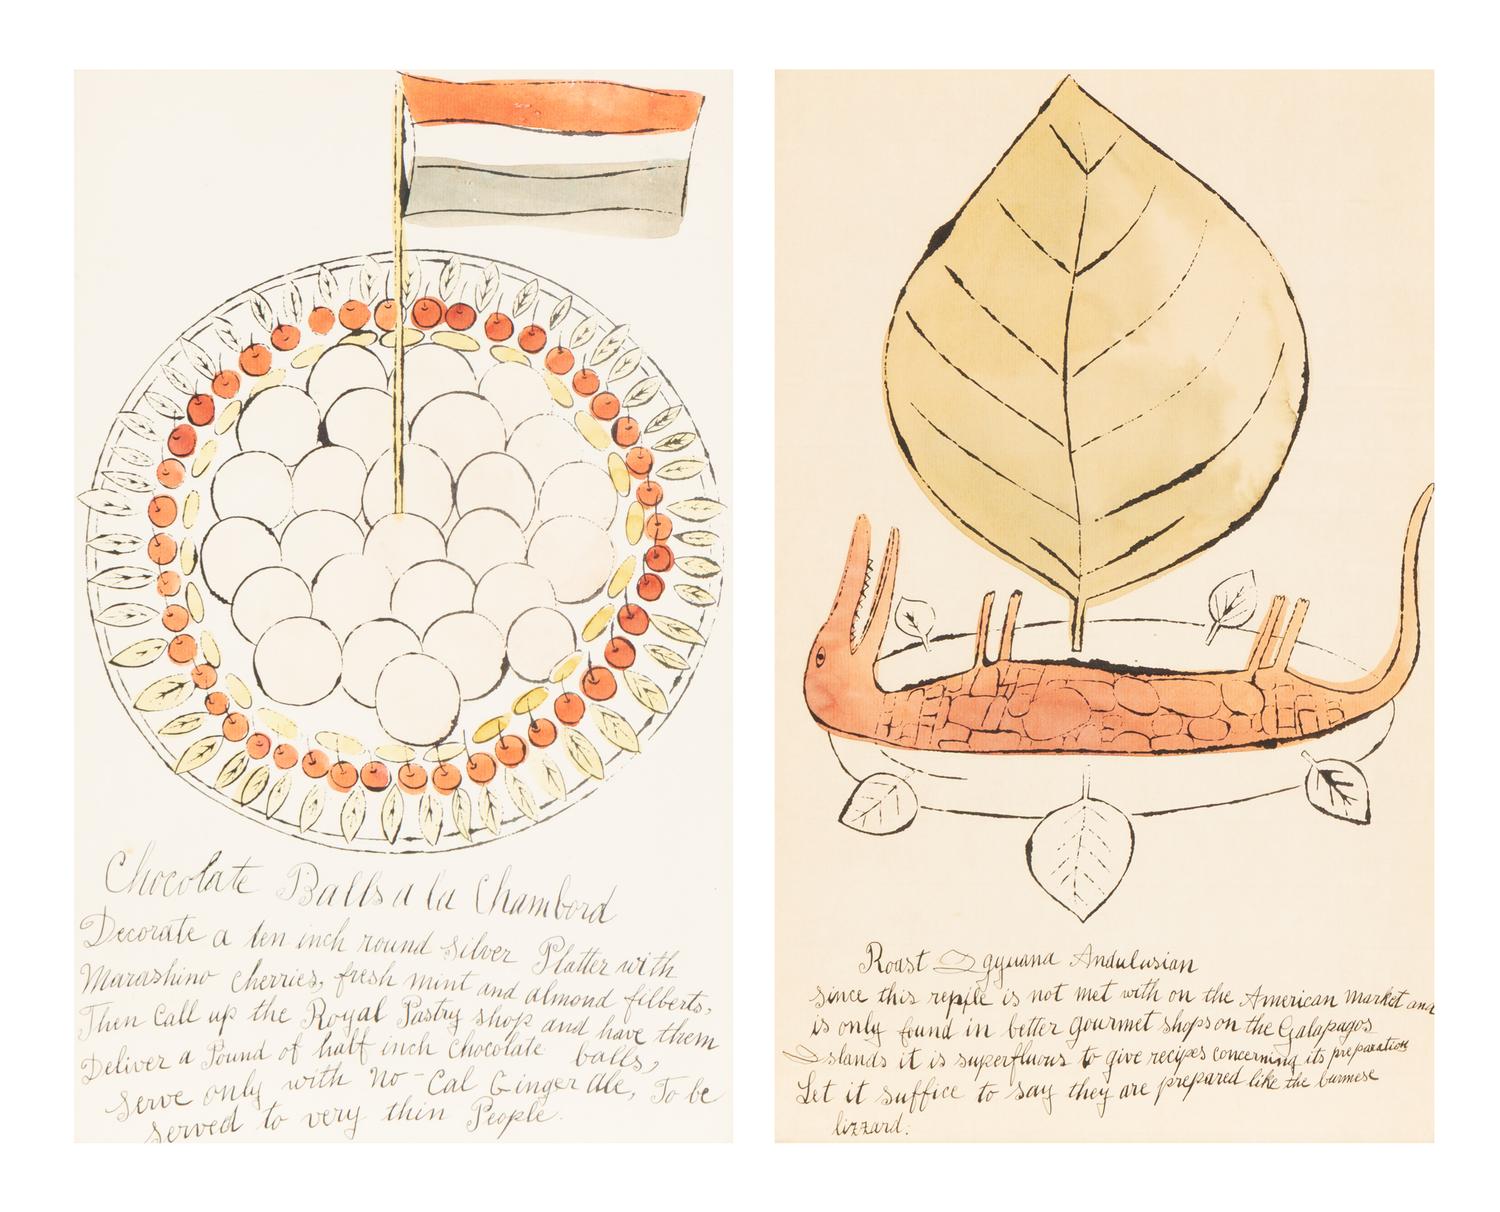 Chocolate Balls a la Chambord
Decorate a ten inch round silver Platter with
Marashino cherries, fresh mint and almond filberts,
Then Call up the Royal Pastry shop and have them
Deliver a Pound of half inch chocolate balls,
Serve only with No-Cal Ginger Ale, To be
served to very thin People.
Roast Igyuana Andulusian
since this repile is not met with on the American Market and
is only found in better gourmet shops on the Galapagos
Islands it is superfluous to give recipes concerning its preparation
Let it suffice to say they are prepared like the burmese
lizzard.